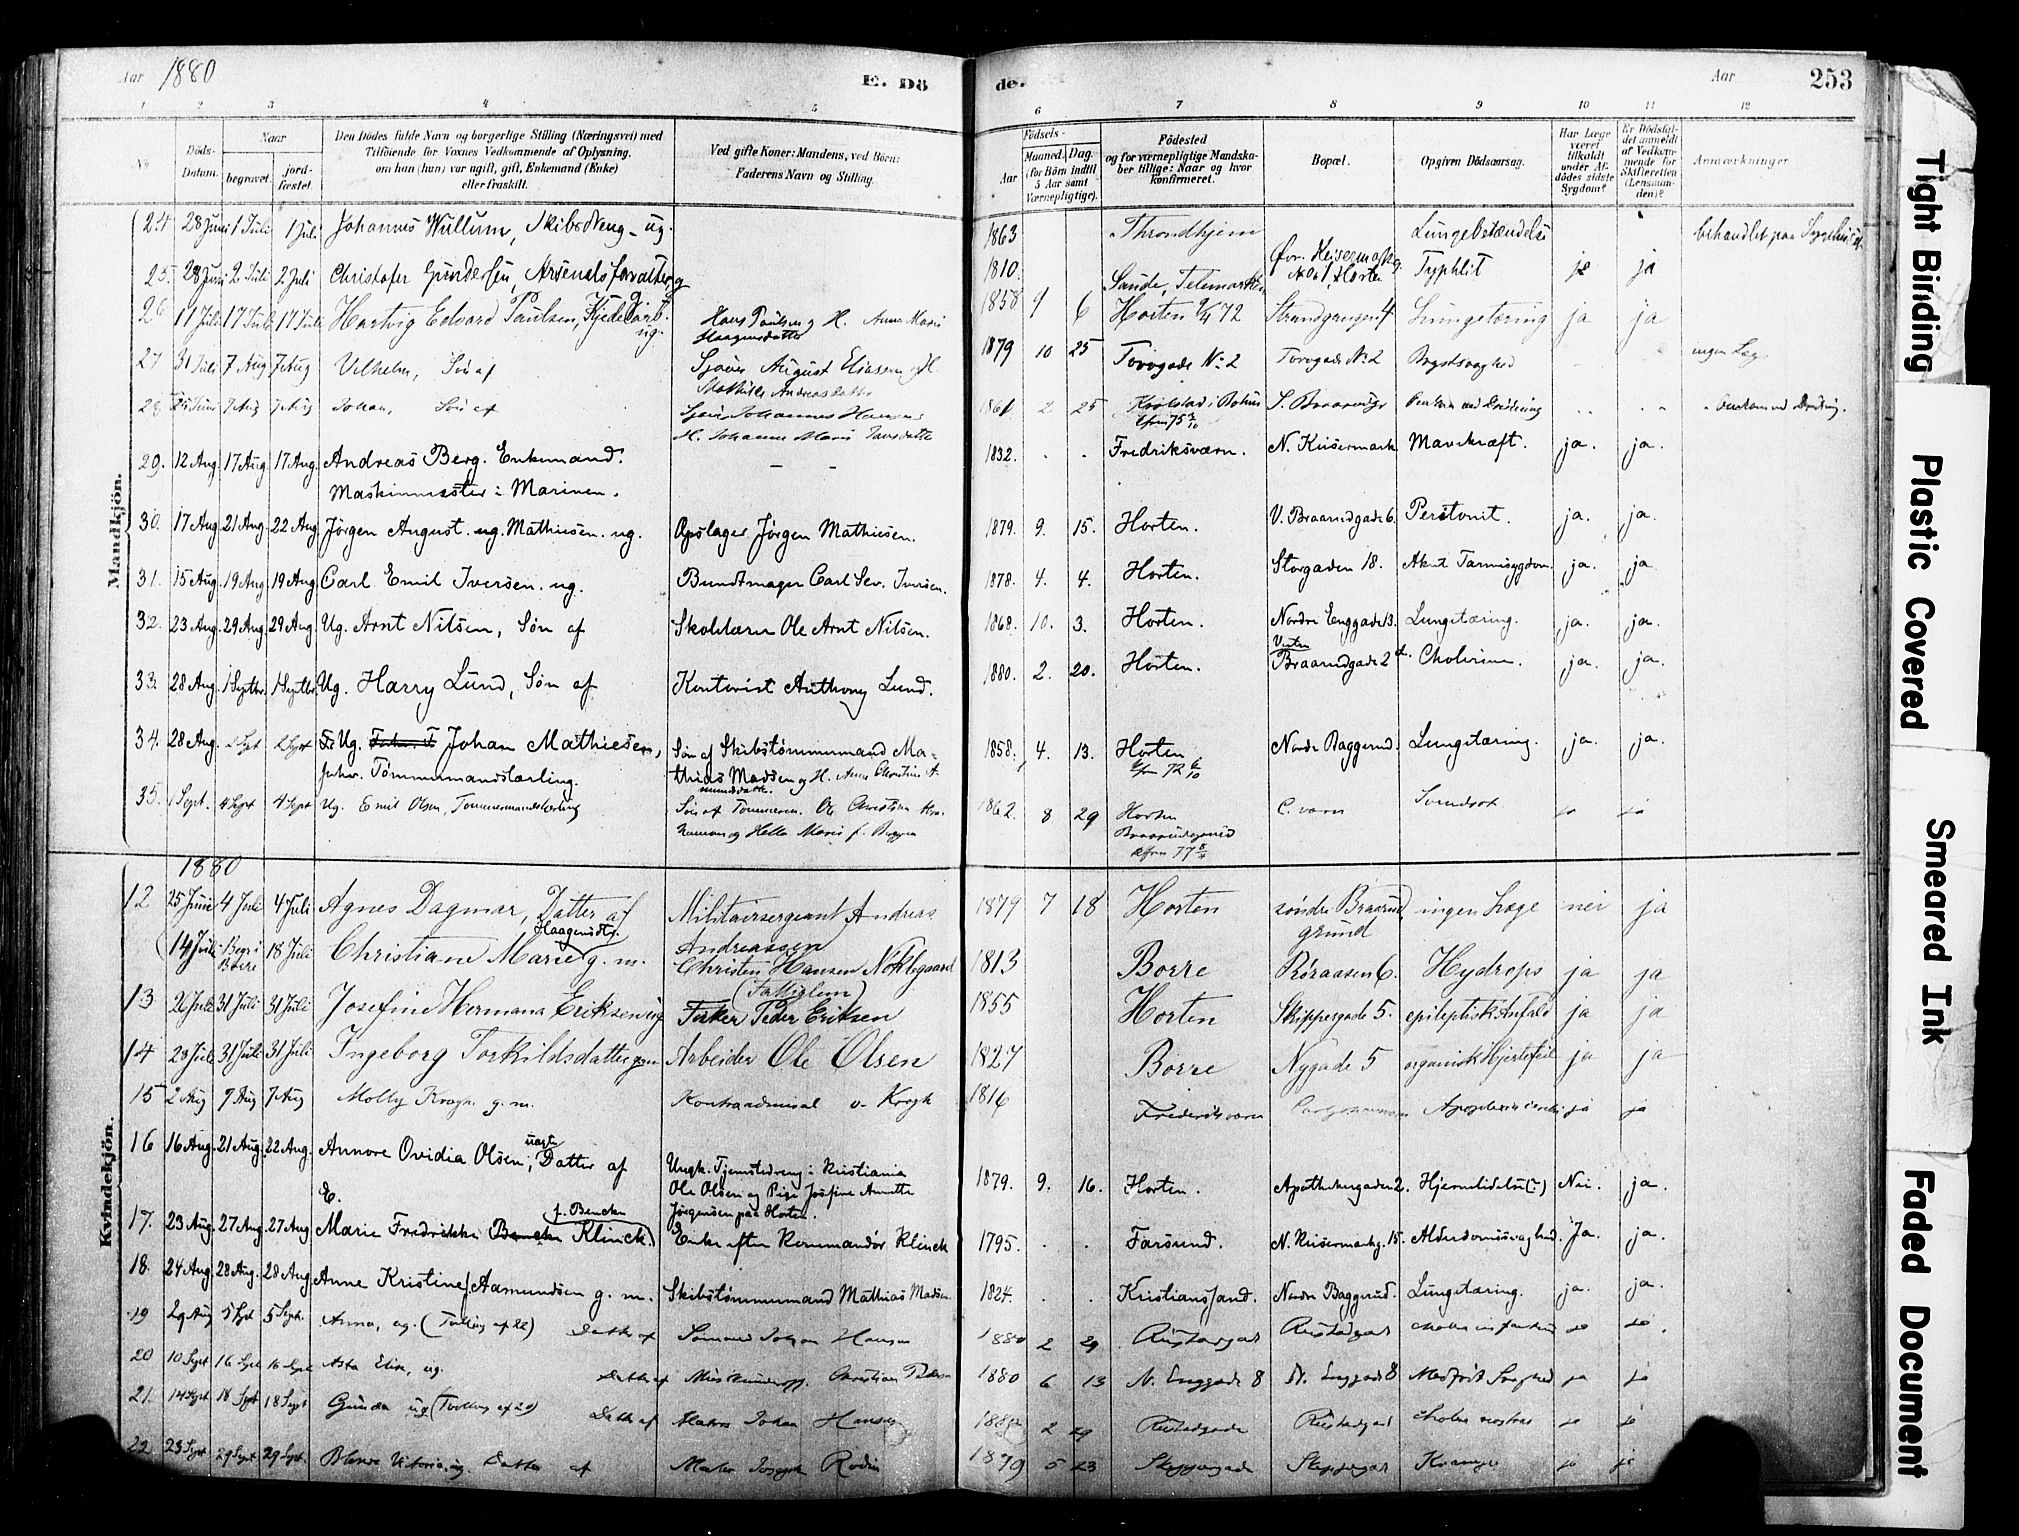 Aar 1880
E. Dö
de.
Aar
253
1 2 3 4 5
6 7 8 9 10 11 12
No
Döds-Datum.
Naar
begravet.
jord-fæstet.
Den Dödes fulde Navn og borgerlige Stilling (Næringsvei) med
Tilföiende for Voxnes Vedkommende af Oplysning,
om han (hun) var ugift, gift, Enkemand (Enke)
eller fraskilt.
Ved gifte Koner: Mandens, ved Börn:
Faderens Navn og Stilling.
Födsels-
Aar
Maaned. Dag.
(for Börn indtil
5 Aar samt
Værnepligtige).
Födested
og for værnepligtige Mandska-
ber tillige: Naar og hvor
konfirmeret.
Bopæl.
Opgiven Dödsaarsag.
Har Læge
været
tilkaldt
under Af-
dödes sidste
Sygdom?
Er Dödsfal-
det anmeldt
af Vedkom-
mende for
Skifteretten
(Lensman-
den)?
Anmærkninger
Mandkjön.
24 28 Juni 1 Juli 1 Juli Johannes Wullum, Skibsdreng - ug. 1863 Throndhjem Lungebetændelse behandlet paa
25. 28 Juni 2 Juli 2 Juli Christofer Gundersen, Arsenalsforvalter, g 1810. Sande, Telemarken No 1, Horten Typhlit ja ja
26 11 Juli 17 Juli 17 Juli Hartvig Edvard Paulsen, ug. Hans Paulsen og H. Anne Marie
Haagensdatter 1858 9 6 Horten 72 Strandgaugen 4 Lungetæring ja ja
27 31 Juli 7 Aug 7 Aug Vilhelm, Søn af August Eliasen og H.
Mathilde Andreasdatter 1879 10 25 Torvgade No 2 Torvgade No 2 Brystsvaghed ingen Læge
28 7 Aug 7 Aug Johan, Søn af Johannes Hansen
H. Johanne Marie 1861 2 25 75
29. 12 Aug. 17 Aug. 17 Aug. Andreas Berg. Enkemand.
Maskinmester i Marinen. - - 1832. . . Fredriksværn. N. Keisermark Mavekræft. ja. ja.
30. 17 Aug. 21 Aug. 22 Aug Jørgen August. ug. Mathiesen. ug. Opslager Jørgen Mathiesen. 1879. 9. 15. Horten. V. Braarudgade 6. Peritonit. ja. ja.
31. 15 Aug. 19 Aug 19 Aug Carl Emil Iversen. ug. Bundtmager Carl Sev. Iversen. 1878. 4. 4. Horten. Storgaden 18. Akut Tarmsygdom. ja. ja.
32. 23 Aug. 29 Aug 29 Aug Ug. Arnt Nilsen, Søn af Skolelærer Ole Arnt Nilsen. 1868. 10. 3. Horten. Nordre Enggade 13. Lungetæring. ja. ja.
33. 28 Aug. 1 Septbr. 1 Septbr. Ug. Harry Lund, Søn af Kontorist Anthony Lund. 1880. 2. 20. Horten. Vestre
Braarudgade 2 Cholerine. ja. ja.
34. 28 Aug. 2 Sept 2 Sept Ug. Johan Mathiesen,
forhv. Tømmermandslærling. Søn af Skibstømmermand Ma-
thias Madsen og H. Anne Christine A-
mundsdatter 1858. 4. 13. Horten
72 Nordre Baggerud. Lungetæring. ja. ja.
35. 1 Sept. 4 Sept 4 Sept Ug. Emil Olsen, Tømmermandslærling Søn af Tømmerm. Ole Christian
og Helle Marie f. 1862. 8 29 Horten
Braarudgrund
77 ja ja
Kvindekjön.
1880
12 25 Juni 4 Juli 4 Juli Agnes Dagmar, Datter af Militairsergeant Andreas
Andreassen 1879 7 18 Horten søndre Braarud
grund ingen Læge nei ja
14 Juli Begr. i
Borre 18 Juli Christiane Marie Haagensdtr. g. m. Christen Hansen Nøklegaard
(Fattiglem) 1813 Borre Røraasen 6. Hydrops ja ja
13 26 Juli 31 Juli 31 Juli Josefine Hermana Eriksen ug Fisker Peder Eriksen 1855 Horten Skippergade 5. epileptisk Anfald ja ja
14 28 Juli 31 Juli 31 Juli Ingeborg Torkildsdatter g.m. Arbeider Ole Olsen 1827 Borre Nygade 5 organisk Hjertefeil ja ja
15 2 Aug 7 Aug 7 Aug Molly Krogh g. m. Kontraadmiral v. Krogh 1816 Frederiksværn ja ja
16 16 Aug. 21 Aug. 22 Aug. Annore Ovidia Olsen, uægte Datter af Ungk. Tjenestedreng i Kristiania
Ole Olsen og Pige Josefine Annette
Jørgensen paa Horten. 1879. 9. 16. Horten. Apothekergaden 2. Hjernelidelse (?) Nei. ja.
17. 23 Aug. 27 Aug. 27 Aug E. Marie Fredrikke Klinck. f. Bencke Enke efter Kommandør Klinck 1795. . . Farsund. N. Keisermarkg. 15. Alderdomssvaghed. Ja. ja.
18. 24 Aug. 28 Aug. 28 Aug Anne Kristine Aamundsen g. m. Skibstømmermand Mathias Madsen. 1824. . . Kristiansand. Nordre Baggerud. Lungetæring. ja. ja.
19 29 Aug 5 Sept 5 Sept. Anna, ug. (Tvilling af 22) Datter af Sømand Johan Hansen 1880 2 29 Rustadgad Rustadgad ja ja.
20 10 Sept 16 Sept 16 Sept Asta Elise, ug. Datter af Christian 1880 6 13 N. Enggade 8 N. Enggade 8 Medfødt Svaghed ja ja
21. 14 Sept 18 Sept 18 Sept Gunda ug (Tvilling af 20) Datter af Matros Johan Hansen 1880 2 29 Rustadgade Rustadgad ja ja
22 23 Sept 29 Sept 29 Sept. Victoria, ug. Datter af Maler Joseph 1879 5 23 Skippergade Skippergad ja ja
Tight Binding
Plastic Covered
Smeared Ink
Faded Document